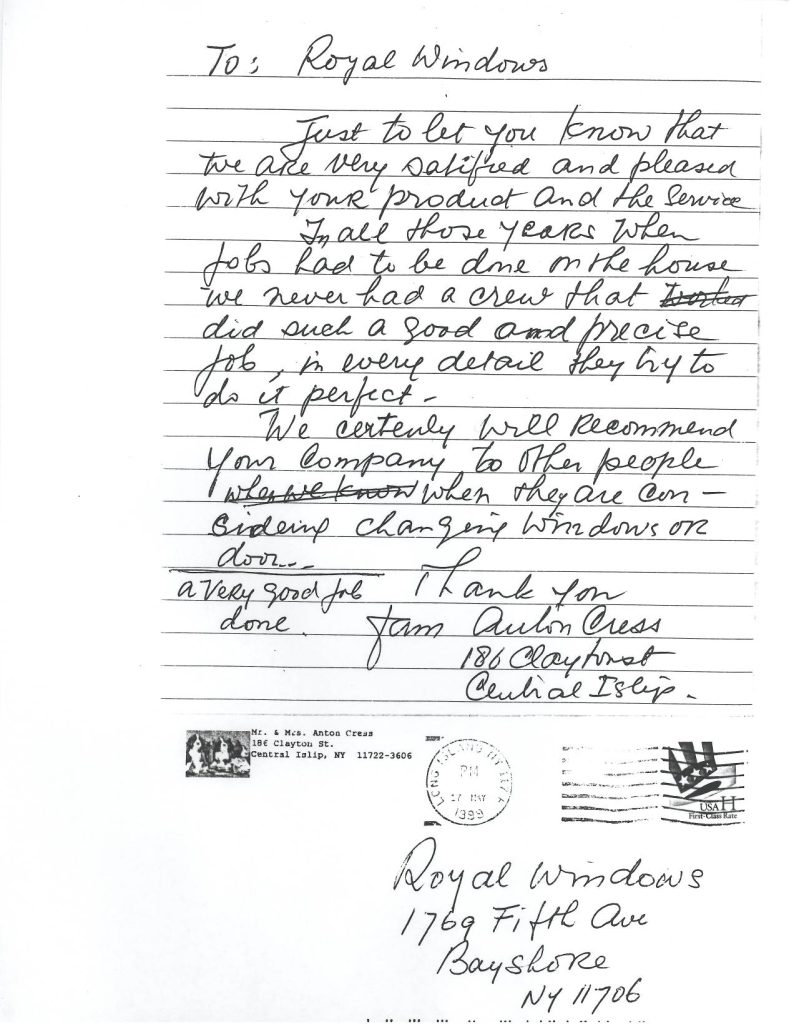 To: Royal Windows
Just to let you know that
we are very satified and pleased
with your product and the service
In all those years when
jobs had to be done on the house
we never had a crew that worked
did such a good and precise
job, in every detail they try to
do it perfect-
We certenly will recommend
your Company to other people
when we know when they are con-
sidering changing windows or
door...
a very good job
done.
Thank you
Fam Anton Cress
186 Clayton st
Central Islip.
Mr. & Mrs. Anton Cress
186 Clayton St.
Central Islip, NY 11722-3606
LONG ISLAND NY
PM
17 MAY
1999
USA H
First-Class Rate
Royal Windows
1769 Fifth Ave
Bayshore
NY 11706